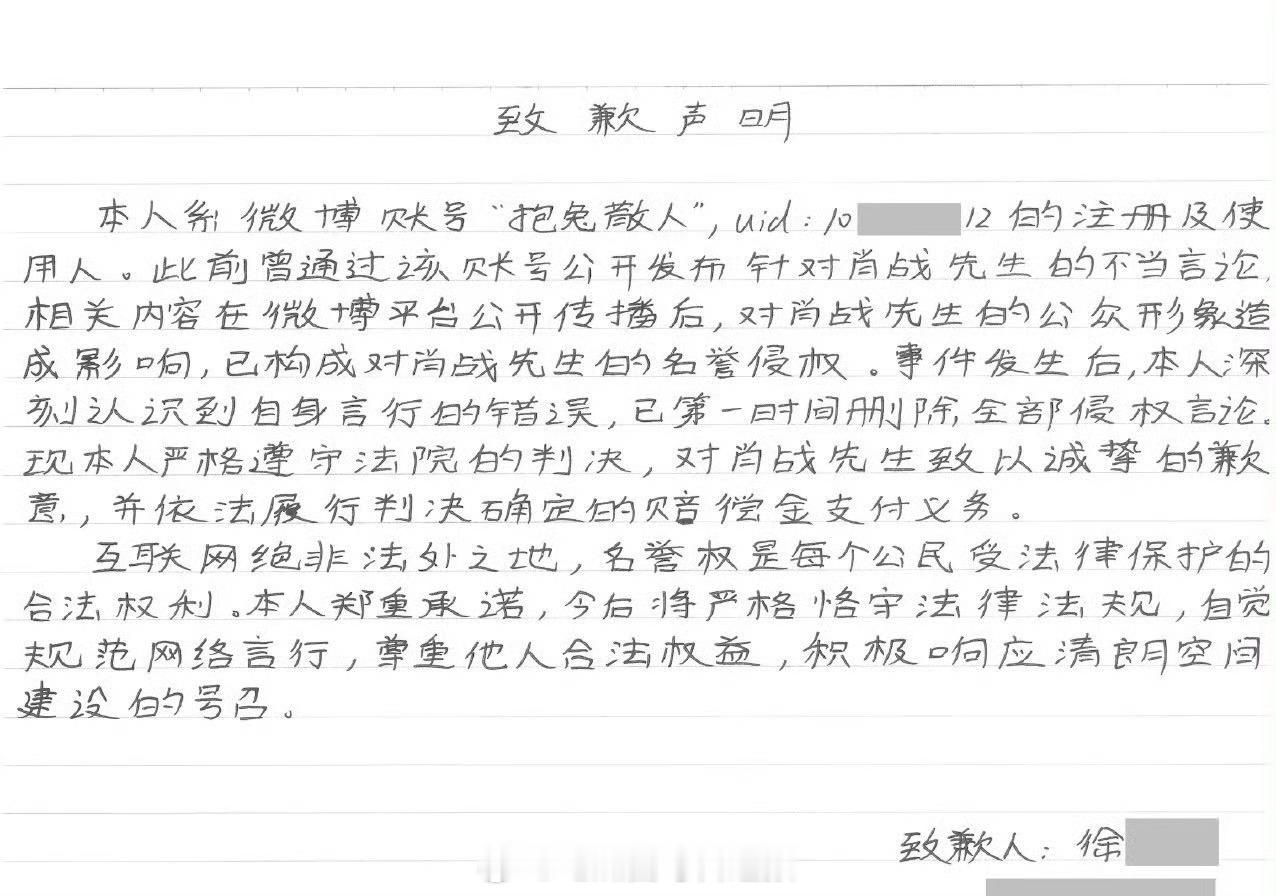 致歉声明
本人系微博账号“抱兔散人”，uid：10 12的注册及使
用人。此前曾通过该账号公开发布针对肖战先生的不当言论，
相关内容在微博平台公开传播后，对肖战先生的公众形象造
成影响，已构成对肖战先生的名誉侵权。事件发生后，本人深
刻认识到自身言行的错误，已第一时间删除全部侵权言论。
现本人严格遵守法院的判决，对肖战先生致以诚挚的歉
意，并依法履行判决确定的赔偿金支付义务。
互联网绝非法外之地，名誉权是每个公民受法律保护的
合法权利。本人郑重承诺，今后将严格恪守法律法规，自觉
规范网络言行，尊重他人合法权益，积极响应清朗空间
建设的号召。
致歉人：徐